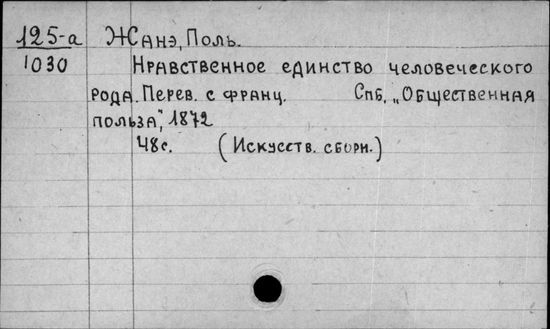 125-а Жанэ, Поль.
1030 Нравственное единство человеческого
рода. Перев. с франц. Спб, „Общественная
польза", 1872
48с. (Искусств. сборн.)